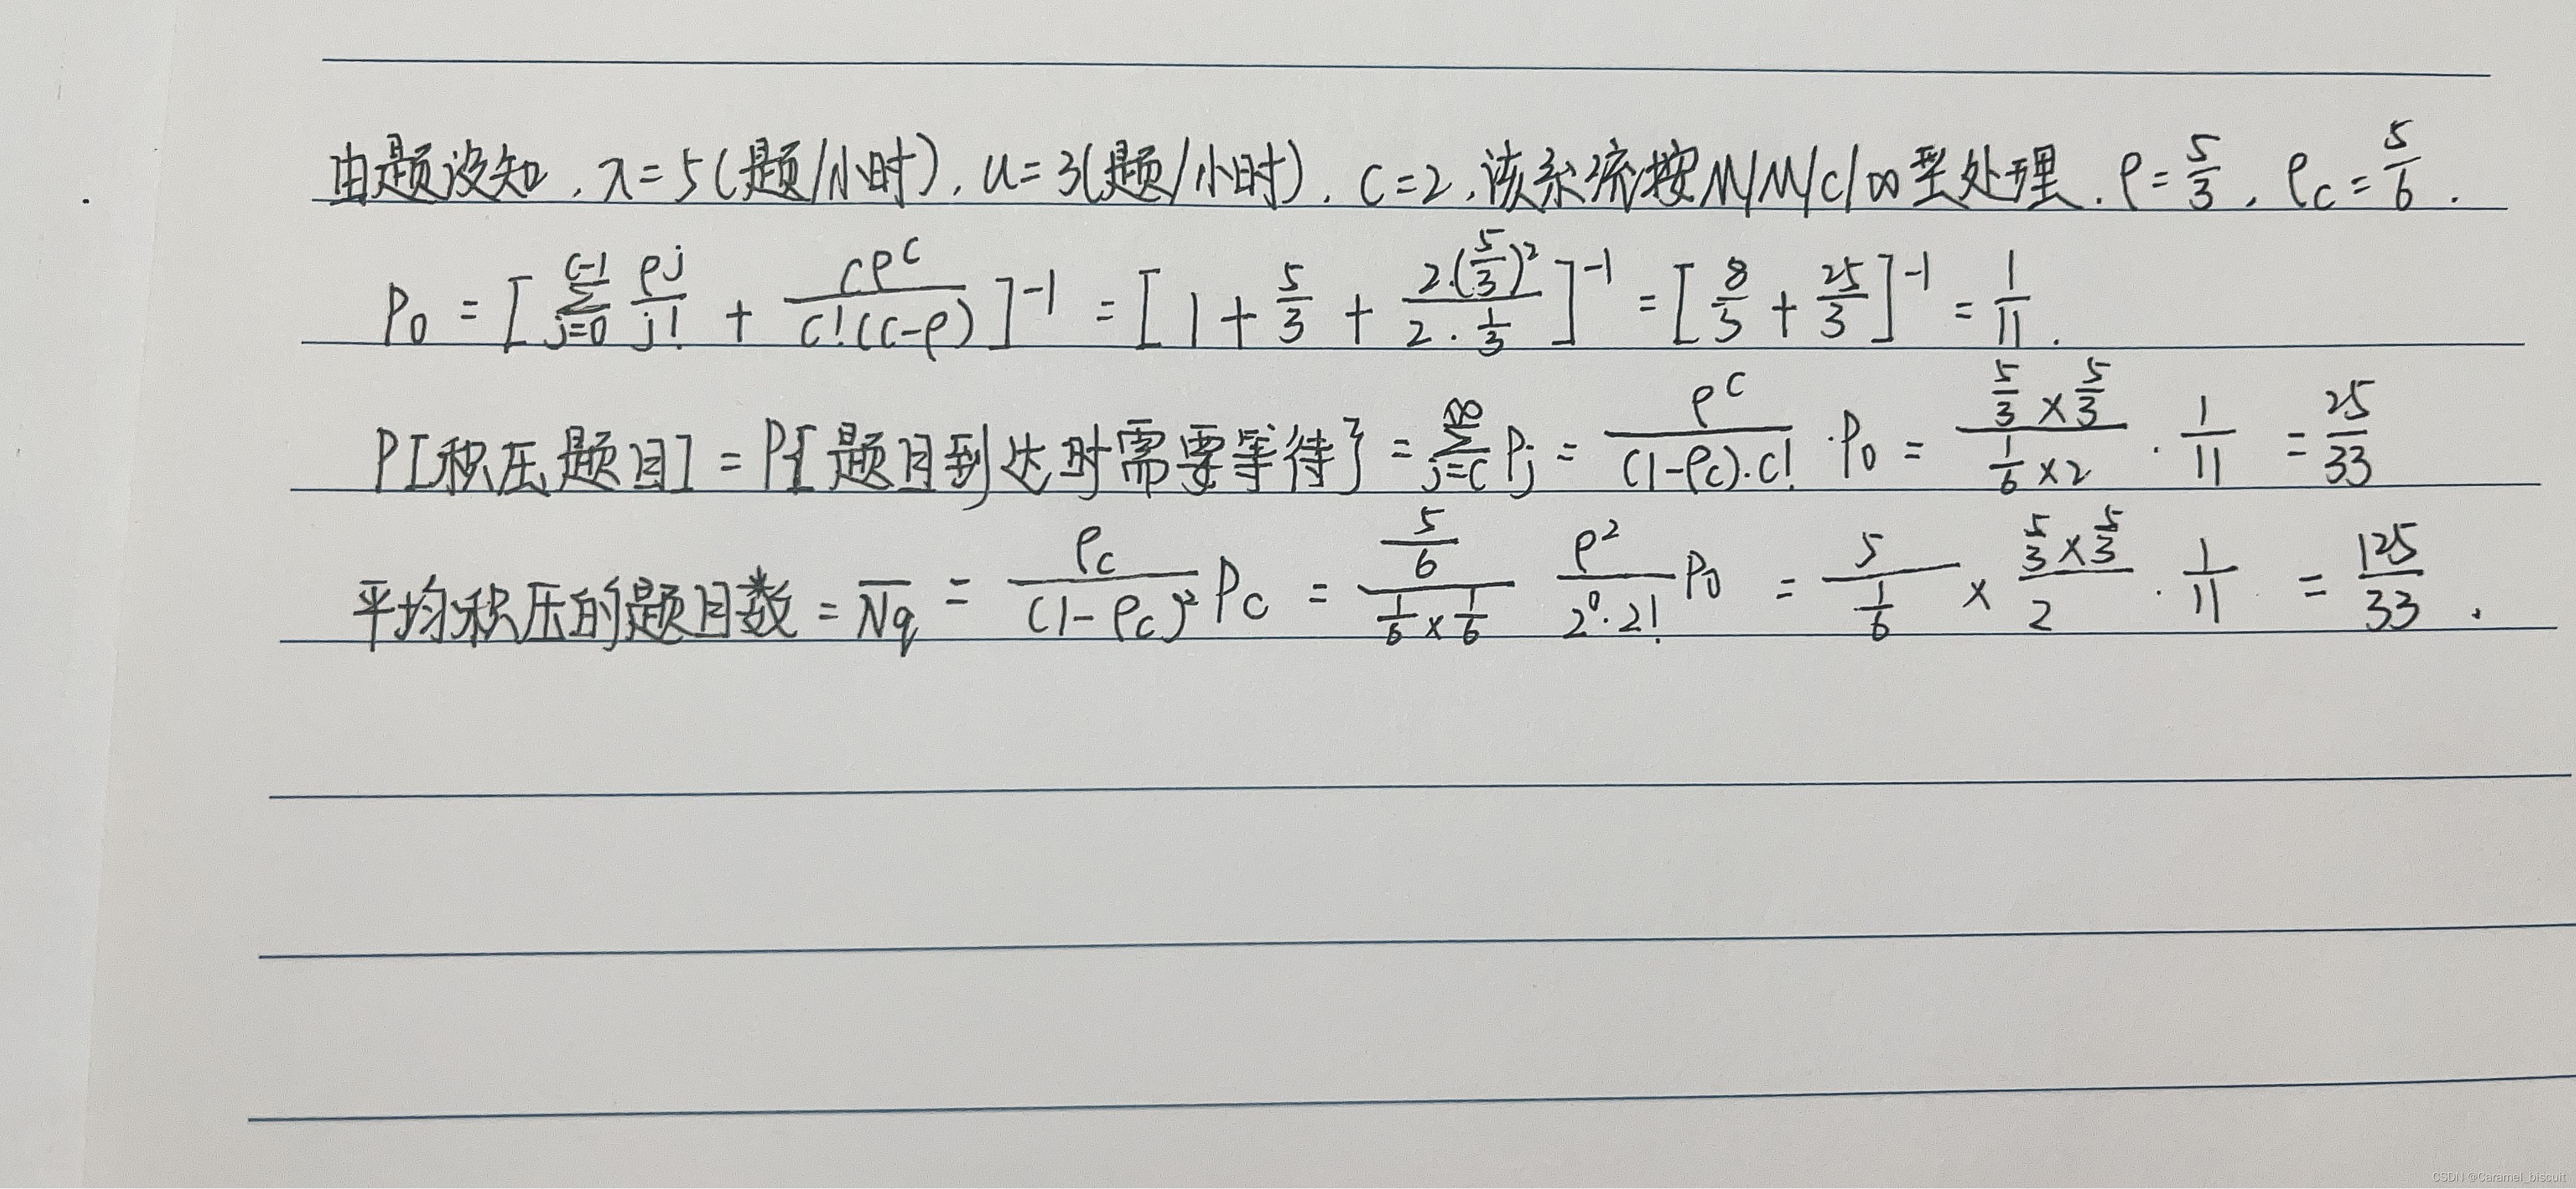 由题设知,λ=5(题/小时),u=3(题/小时),C=2,该系统按M/M/c/∞型处理.ρ=5/3,ρc=5/6.
P0=[∑_{j=0}^{c-1} ρ^j/j! + cρ^c/(c!(c-ρ))]^{-1}=[1+5/3+2·(5/3)^2/(2·1/3)]^{-1}=[8/3+25/3]^{-1}=1/11.
P[积压题目]=P{题目到达时需要等待}=∑_{j=c}^{∞} Pj=ρ^c/((1-ρc)·c!)·P0=(5/3×5/3)/(1/6×2)·1/11=25/33
平均积压的题目数=N̅q=ρc/(1-ρc)^2 Pc=(5/6)/(1/6×1/6) ρ^2/(2^0·2!) P0=5/(1/6)×(5/3×5/3)/2·1/11=125/33.
CSDN @Caramel_biscuit